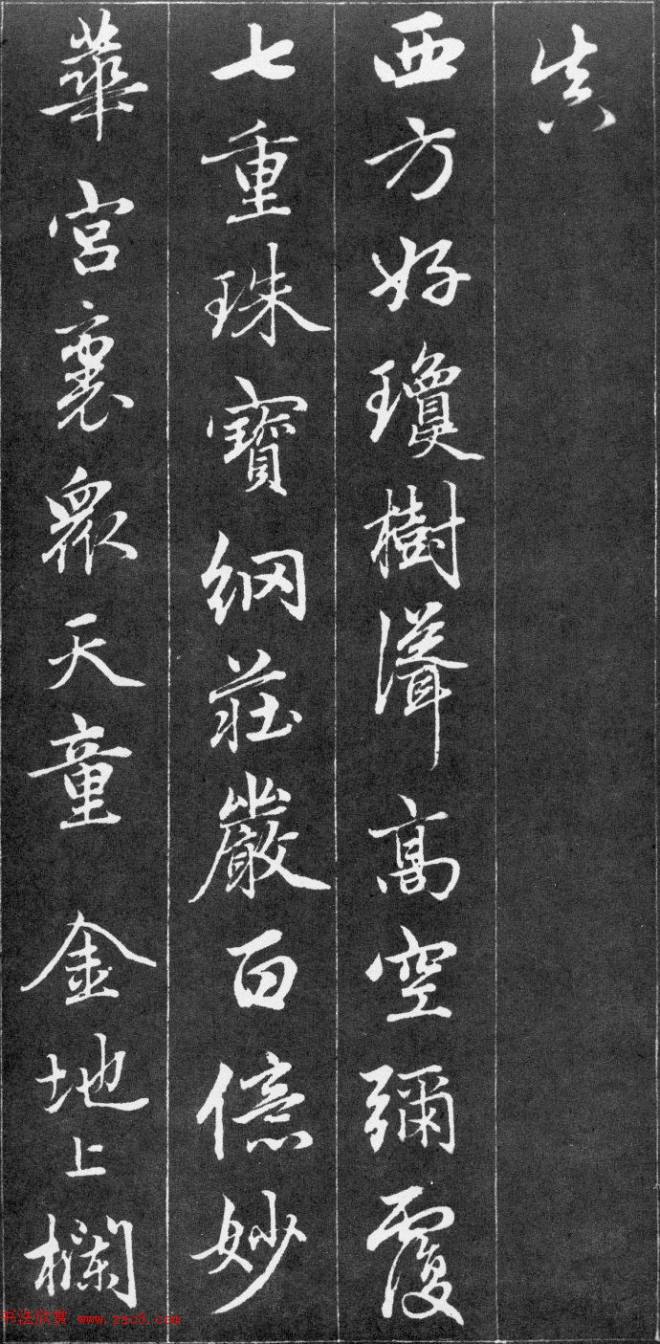 真
西方好瓊樹聳高空彌覆
七重珠寶網莊嚴百億妙
華宮裏眾天童 金地上欄
书法欣赏 www.yac8.com